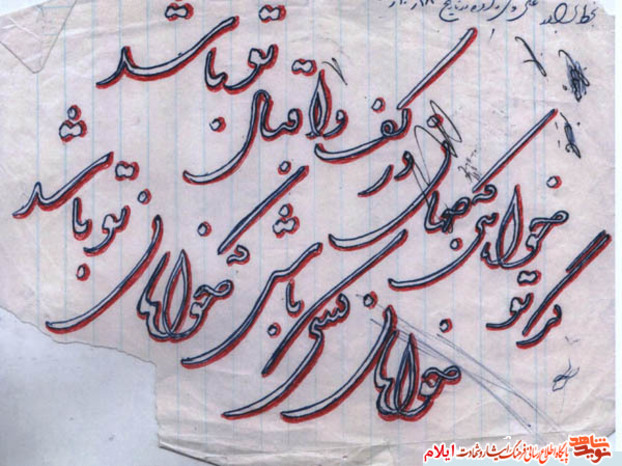 بخط برادر
گر تو خواهی که جهان در کف و اقبال تو باشد
خواهان کسی باش که خواهان تو باشد
نوید شاهد پایگاه اطلاع رسانی فرهنگ ایثار و شهادت ایلام